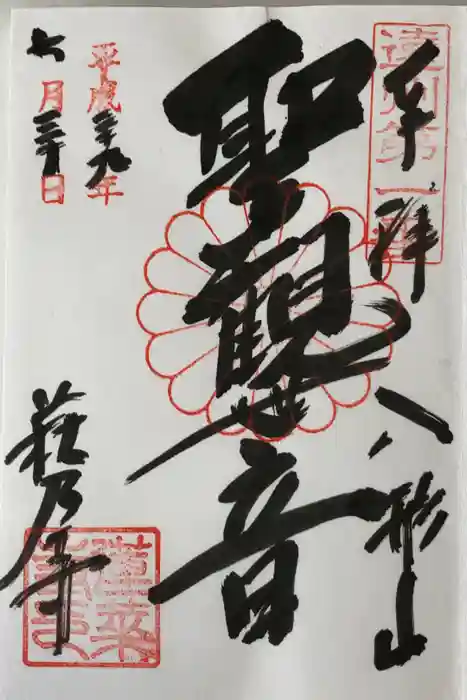 遠州第一番
奉拝
八形山
聖観世音
平成二十九年
七月三十日
萩乃寺